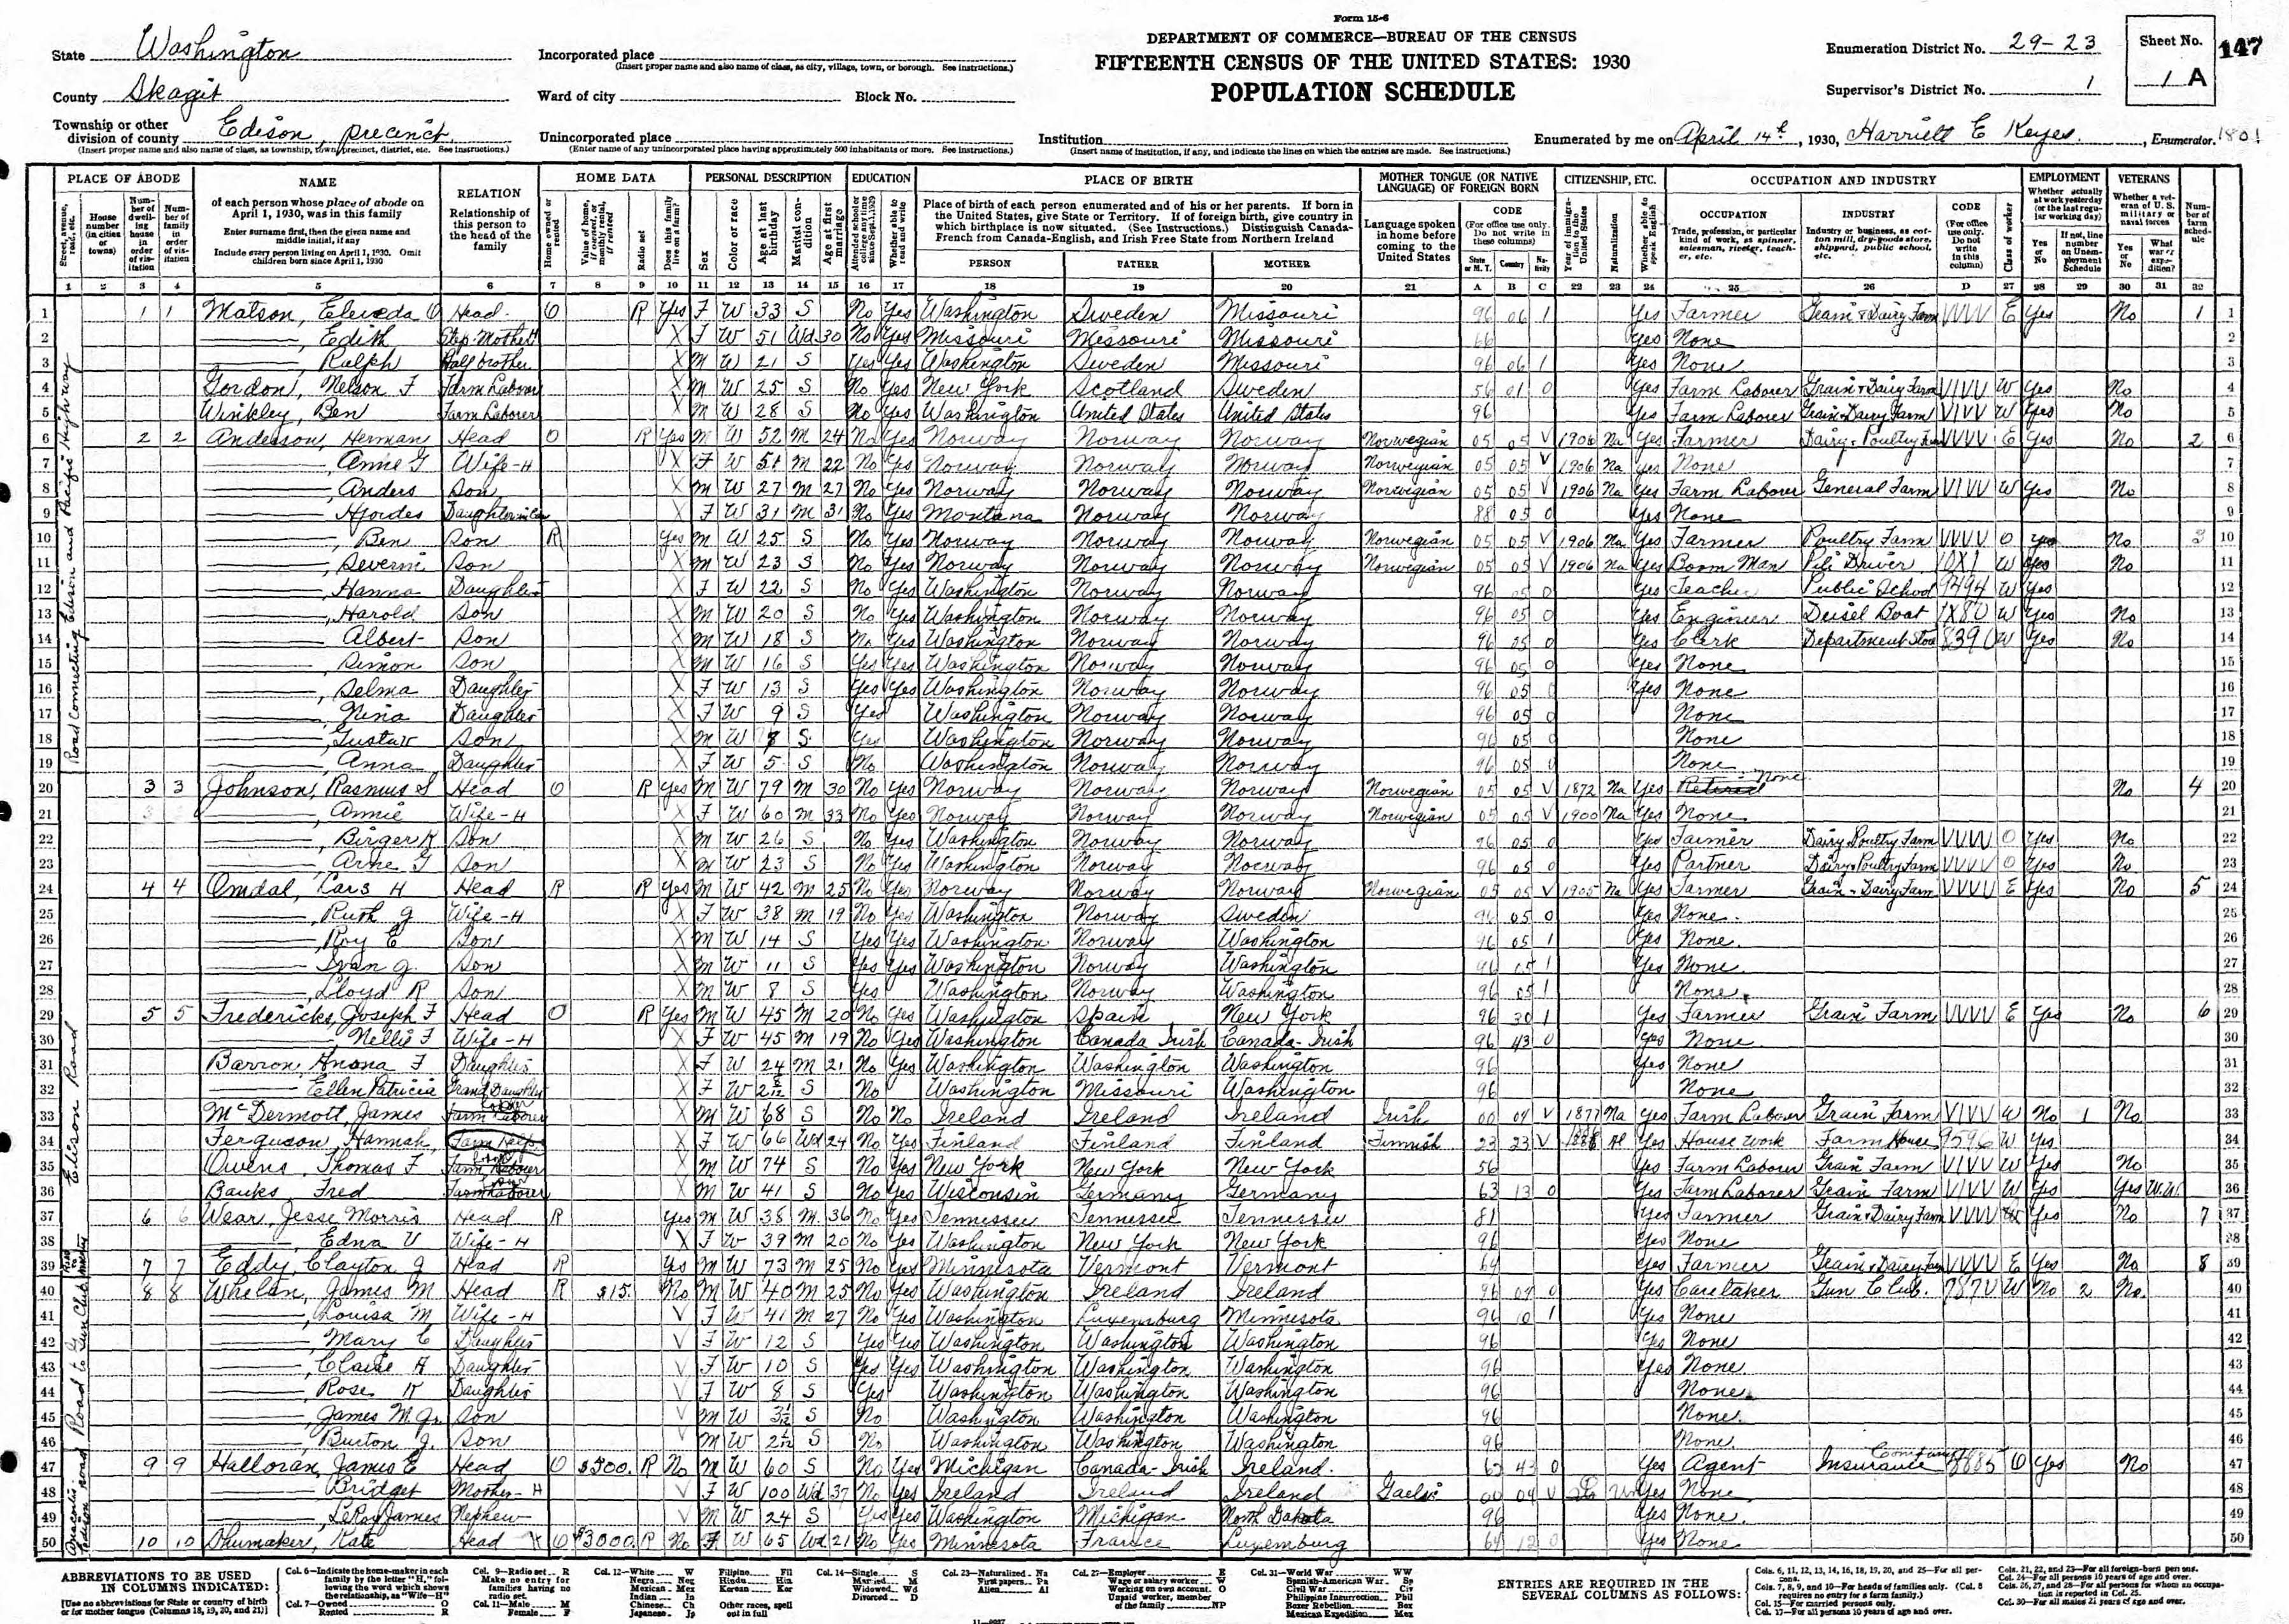 Form 15-6
DEPARTMENT OF COMMERCE—BUREAU OF THE CENSUS
FIFTEENTH CENSUS OF THE UNITED STATES: 1930
POPULATION SCHEDULE
State Washington
County Skagit
Township or other division of county Edison, precinct
(Insert proper name and also name of class, as township, town, precinct, district, etc. See instructions.)
Incorporated place
(Insert proper name and also name of class, as city, village, town, or borough. See instructions.)
Ward of city Block No.
Unincorporated place
(Enter name of any unincorporated place having approximately 500 inhabitants or more. See instructions.)
Institution
(Insert name of institution, if any, and indicate the lines on which the entries are made. See instructions.)
Enumeration District No. 29-23
Supervisor's District No. 1
Sheet No. 1 A
147
Enumerated by me on April 14th, 1930, Harriett E Keyes, Enumerator. 1801
PLACE OF ABODE NAME RELATION HOME DATA PERSONAL DESCRIPTION EDUCATION PLACE OF BIRTH MOTHER TONGUE (OR NATIVE LANGUAGE) OF FOREIGN BORN CITIZENSHIP, ETC. OCCUPATION AND INDUSTRY EMPLOYMENT VETERANS
of each person whose place of abode on April 1, 1930, was in this family
Enter surname first, then the given name and middle initial, if any
Include every person living on April 1, 1930. Omit children born since April 1, 1930
Relationship of this person to the head of the family
Place of birth of each person enumerated and of his or her parents. If born in the United States, give State or Territory. If of foreign birth, give country in which birthplace is now situated. (See Instructions.) Distinguish Canada-French from Canada-English, and Irish Free State from Northern Ireland
PERSON FATHER MOTHER
Language spoken in home before coming to the United States
CODE (For office use only. Do not write in these columns)
OCCUPATION Trade, profession, or particular kind of work, as spinner, salesman, riveter, teacher, etc.
INDUSTRY Industry or business, as cotton mill, dry-goods store, shipyard, public school, etc.
Road Connecting Edison and Pacific Highway
1 1 1 Matson, O Head O R Yes F W 33 S No Yes Washington Sweden Missouri 96 06 1 Yes Farmer Grain & Dairy Farm VVVV E Yes No 1 1
2 Edith Step-Mother-H X F W 51 Wd 30 No Yes Missouri Missouri Missouri 66 Yes None 2
3 Ralph Half brother X M W 21 S Yes Yes Washington Sweden Missouri 96 06 1 Yes None 3
4 Gordon, Nelson F Farm Laborer X M W 25 S No Yes New York Scotland Sweden 56 01 0 Yes Farm Laborer Grain & Dairy Farm VIVV W Yes No 4
5 Winkley, Ben Farm Laborer X M W 28 S No Yes Washington United States United States 96 Yes Farm Laborer Grain & Dairy Farm VIVV W Yes No 5
6 2 2 Anderson, Herman Head O R Yes M W 52 M 24 No Yes Norway Norway Norway Norwegian 05 05 V 1906 Na Yes Farmer Dairy & Poultry Farm VVVV E Yes No 2 6
7 Anne G Wife-H X F W 51 M 22 No Yes Norway Norway Norway Norwegian 05 05 V 1906 Na Yes None 7
8 Anders Son X M W 27 M 27 No Yes Norway Norway Norway Norwegian 05 05 V 1906 Na Yes Farm Laborer General Farm VIVV W Yes No 8
9 Hjordes Daughter in law X F W 31 M 31 No Yes Montana Norway Norway 88 05 0 Yes None 9
10 Ben Son R Yes M W 25 S No Yes Norway Norway Norway Norwegian 05 05 V 1906 Na Yes Farmer Poultry Farm VVVV O Yes No 3 10
11 Severin Son X M W 23 S No Yes Norway Norway Norway Norwegian 05 05 V 1906 Na Yes Boom Man Pile Driver W Yes No 11
12 Hanna Daughter X F W 22 S No Yes Washington Norway Norway 96 05 0 Yes Teacher Public School 9494 W Yes 12
13 Harold Son X M W 20 S No Yes Washington Norway Norway 96 05 0 Yes Engineer Deisel Boat W Yes No 13
14 Albert Son X M W 18 S No Yes Washington Norway Norway 96 05 0 Yes Clerk Department Store W Yes No 14
15 Simon Son X M W 16 S Yes Yes Washington Norway Norway 96 05 0 Yes None 15
16 Selma Daughter X F W 13 S Yes Yes Washington Norway Norway 96 05 0 Yes None 16
17 Nina Daughter X F W 9 S Yes Washington Norway Norway 96 05 0 None 17
18 Gustav Son X M W 8 S Yes Washington Norway Norway 96 05 0 None 18
19 Anna Daughter X F W 5 S No Washington Norway Norway 96 05 0 None 19
20 3 3 Johnson, Rasmus S Head O R Yes M W 79 M 30 No Yes Norway Norway Norway Norwegian 05 05 V 1872 Na Yes Retired None No 4 20
21 Annie Wife-H X F W 60 M 33 No Yes Norway Norway Norway Norwegian 05 05 V 1900 Na Yes None 21
22 Birger K Son X M W 26 S No Yes Washington Norway Norway 96 05 0 Yes Farmer Dairy Poultry Farm VVVV O Yes No 22
23 Arne G Son X M W 23 S No Yes Washington Norway Norway 96 05 0 Yes Partner Dairy & Poultry Farm VVVV O Yes No 23
Edison Road
24 4 4 Omdal, Lars H Head R R Yes M W 42 M 25 No Yes Norway Norway Norway Norwegian 05 05 V 1905 Na Yes Farmer Grain & Dairy Farm VVVV E Yes No 5 24
25 Ruth J Wife-H X F W 38 M 19 No Yes Washington Norway Sweden 96 05 0 Yes None 25
26 Roy E Son X M W 14 S Yes Yes Washington Norway Washington 96 05 1 Yes None 26
27 Ivan J. Son X M W 11 S Yes Yes Washington Norway Washington 96 05 1 Yes None 27
28 Lloyd R Son X M W 8 S Yes Washington Norway Washington 96 05 1 None 28
29 5 5 Fredericks, Joseph F Head O R Yes M W 45 M 20 No Yes Washington Spain New York 96 30 1 Yes Farmer Grain Farm VVVV E Yes No 6 29
30 Nellie F Wife-H X F W 45 M 19 No Yes Washington Canada Irish Canada-Irish 96 43 0 Yes None 30
31 Barron, Anona F Daughter X F W 24 M 21 No Yes Washington Washington Washington 96 Yes None 31
32 Ellen Patricia Grand Daughter X F W S No Washington Missouri Washington 96 None 32
33 McDermott, James Farm Laborer X M W 68 S No No Ireland Ireland Ireland Irish 00 04 V 1877 Na Yes Farm Laborer Grain Farm VIVV W No 1 No 33
34 Ferguson, Hannah Farm Help X F W 66 Wd 24 No Yes Finland Finland Finland Finnish 23 23 V Al Yes House work Farm House 9596 W Yes 34
35 Owens, Thomas F Farm Laborer X M W 74 S No Yes New York New York New York 56 Yes Farm Laborer Grain Farm VIVV W Yes No 35
36 Banks Fred Farm Laborer X M W 41 S No Yes Wisconsin Germany Germany 63 13 0 Yes Farm Laborer Grain Farm VIVV W Yes Yes W.W. 36
37 6 6 Wear, Jesse Morris Head R Yes M W 38 M 36 No Yes Tennessee Tennessee Tennessee 81 Yes Farmer Grain & Dairy Farm VVVV Yes No 7 37
38 Edna V Wife-H X F W 39 M 20 No Yes Washington New York New York 96 Yes None 38
Road to Gun Club
39 7 7 Eddy, Clayton J Head R Yes M W 73 M 25 No Yes Minnesota Vermont Vermont 64 Yes Farmer Grain & Dairy Farm VVVV E Yes No 8 39
40 8 8 Whelan, James M Head R $15. No M W 40 M 25 No Yes Washington Ireland Ireland 96 04 0 Yes Caretaker Gun Club. 787V W No 2 No. 40
41 Louisa M Wife-H V F W 41 M 27 No Yes Washington Luxemburg Minnesota 96 10 1 Yes None 41
42 Mary C Daughter V F W 12 S Yes Yes Washington Washington Washington 96 Yes None 42
43 Claire A Daughter V F W 10 S Yes Yes Washington Washington Washington 96 Yes None 43
44 Rose K Daughter V F W 8 S Yes Washington Washington Washington 96 None 44
45 James M. Jr. Son V M W S No Washington Washington Washington 96 None. 45
46 Burton J. Son M W S No Washington Washington Washington 96 None. 46
Anacortes Edison road
47 9 9 Halloran, James E Head O $500. R No M W 60 S No Yes Michigan Canada-Irish Ireland. 62 43 0 Yes Agent Insurance Company 8885 O Yes No 47
48 Bridget Mother-H V F W 100 Wd 37 No Yes Ireland Ireland Ireland Gaelic 00 04 V Yes None 48
49 LeRoy James Nephew V M W 24 S Yes Yes Washington Michigan North Dakota 96 Yes None. 49
50 10 10 Shumaker, Kate Head O $3000. R No F W 65 Wd 21 No Yes Minnesota France Luxemburg 64 12 0 Yes None 50
ABBREVIATIONS TO BE USED IN COLUMNS INDICATED:
[Use no abbreviations for State or country of birth or for mother tongue (Columns 18, 19, 20, and 21)]
Col. 6—Indicate the home-maker in each family by the letter "H," following the word which shows the relationship, as "Wife—H"
Col. 7—Owned O Rented R
Col. 9—Radio set R Make no entry for families having no radio set.
Col. 11—Male M Female F
Col. 12—White W Negro Neg Mexican Mex Indian In Chinese Ch Japanese Jp Filipino Fil Hindu Hin Korean Kor Other races, spell out in full
Col. 14—Single S Married M Widowed Wd Divorced D
Col. 23—Naturalized Na First papers Pa Alien Al
Col. 27—Employer E Wage or salary worker W Working on own account O Unpaid worker, member of the family NP
Col. 31—World War WW Spanish-American War Sp Civil War Civ Philippine Insurrection Phil Boxer Rebellion Box Mexican Expedition Mex
ENTRIES ARE REQUIRED IN THE SEVERAL COLUMNS AS FOLLOWS:
Cols. 6, 11, 12, 13, 14, 16, 18, 19, 20, and 25—For all persons.
Cols. 7, 8, 9, and 10—For heads of families only. (Col. 8 requires no entry for a farm family.)
Col. 15—For married persons only.
Col. 17—For all persons 10 years of age and over.
Cols. 21, 22, and 23—For all foreign-born persons.
Col. 24—For all persons 10 years of age and over.
Cols. 26, 27, and 28—For all persons for whom an occupation is reported in Col. 25.
Col. 30—For all males 21 years of age and over.